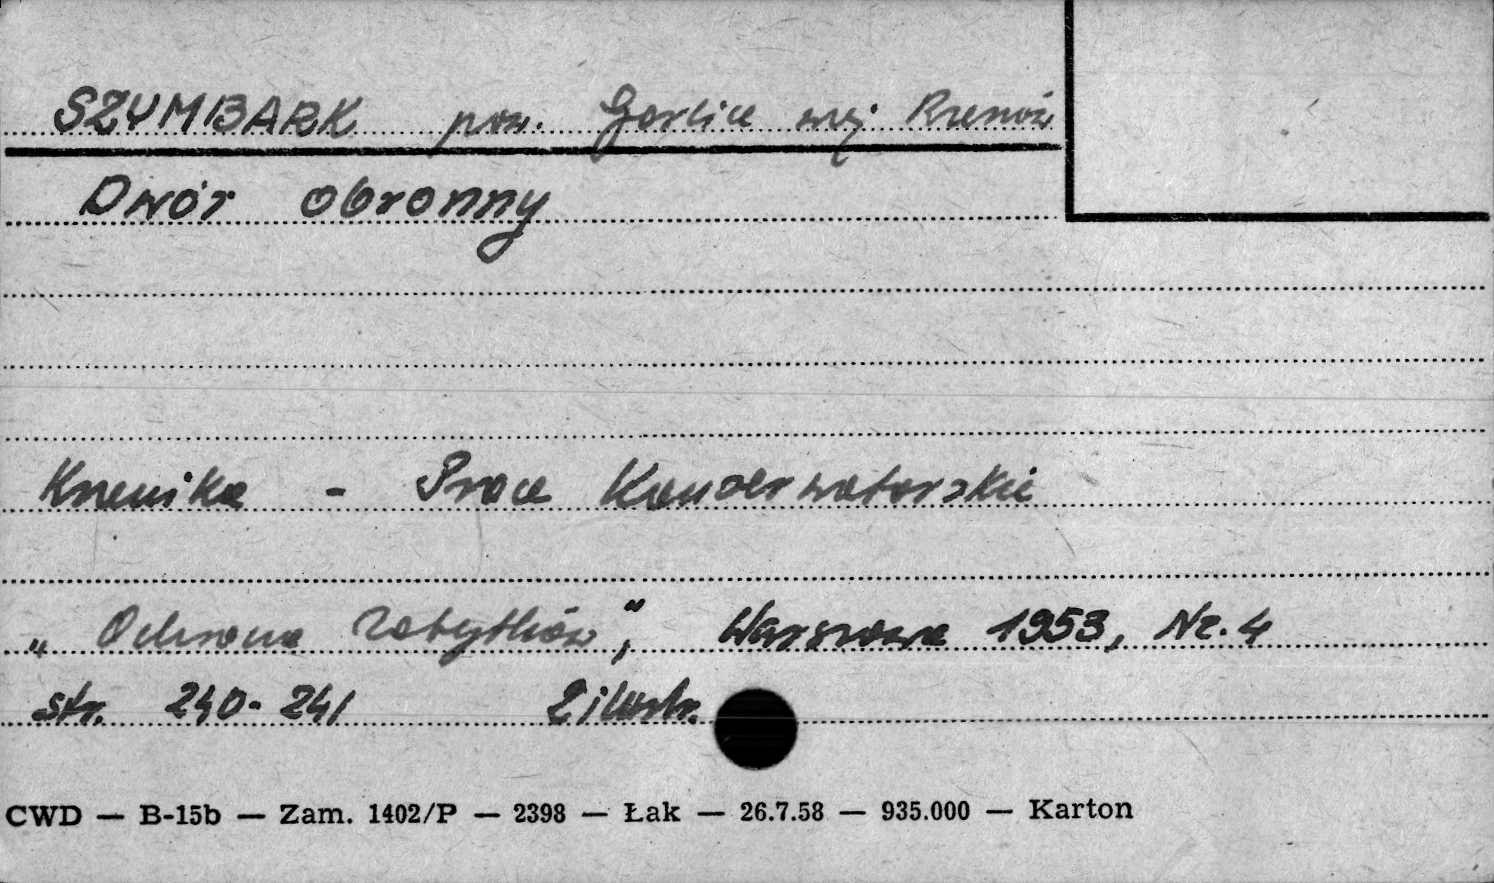 SZYMBARK pow. Gorlice woj Rzeszów
Dwór obronny
Kronika - Prace Konserwatorskie
„Ochrona Zabytków”, Warszawa 1953, Nr. 4
str. 240-241 2 ilustr.
CWD — B-15b — Zam. 1402/P — 2398 — Łak — 26.7.58 — 935.000 — Karton